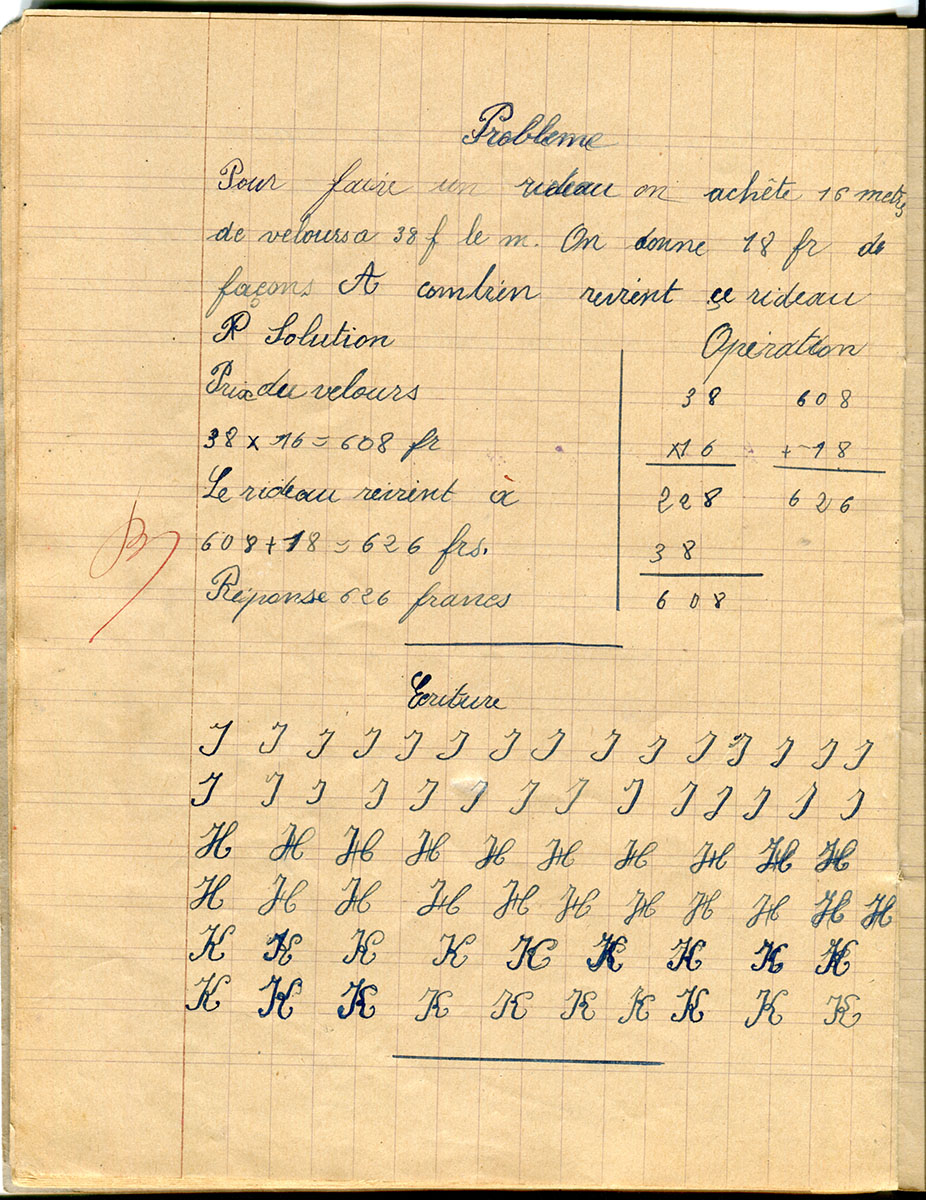 Probleme
Pour faire un rideau on achête 16 metres
de velours a 38 f le m. On donne 18 fr de
façons A combien revient ce rideau
R Solution
Opération
Prix du velours
38 608
38 x 16 = 608 fr
x16 + 18
Le rideau revient à
228 626
608 + 18 = 626 frs.
38
Réponse 626 francs
608
B
Ecriture
J J J J J J J J J J J J J J J
J J J J J J J J J J J J J J
H H H H H H H H H H
H H H H H H H H H H H
K K K K K K K K K
K K K K K K K K K K